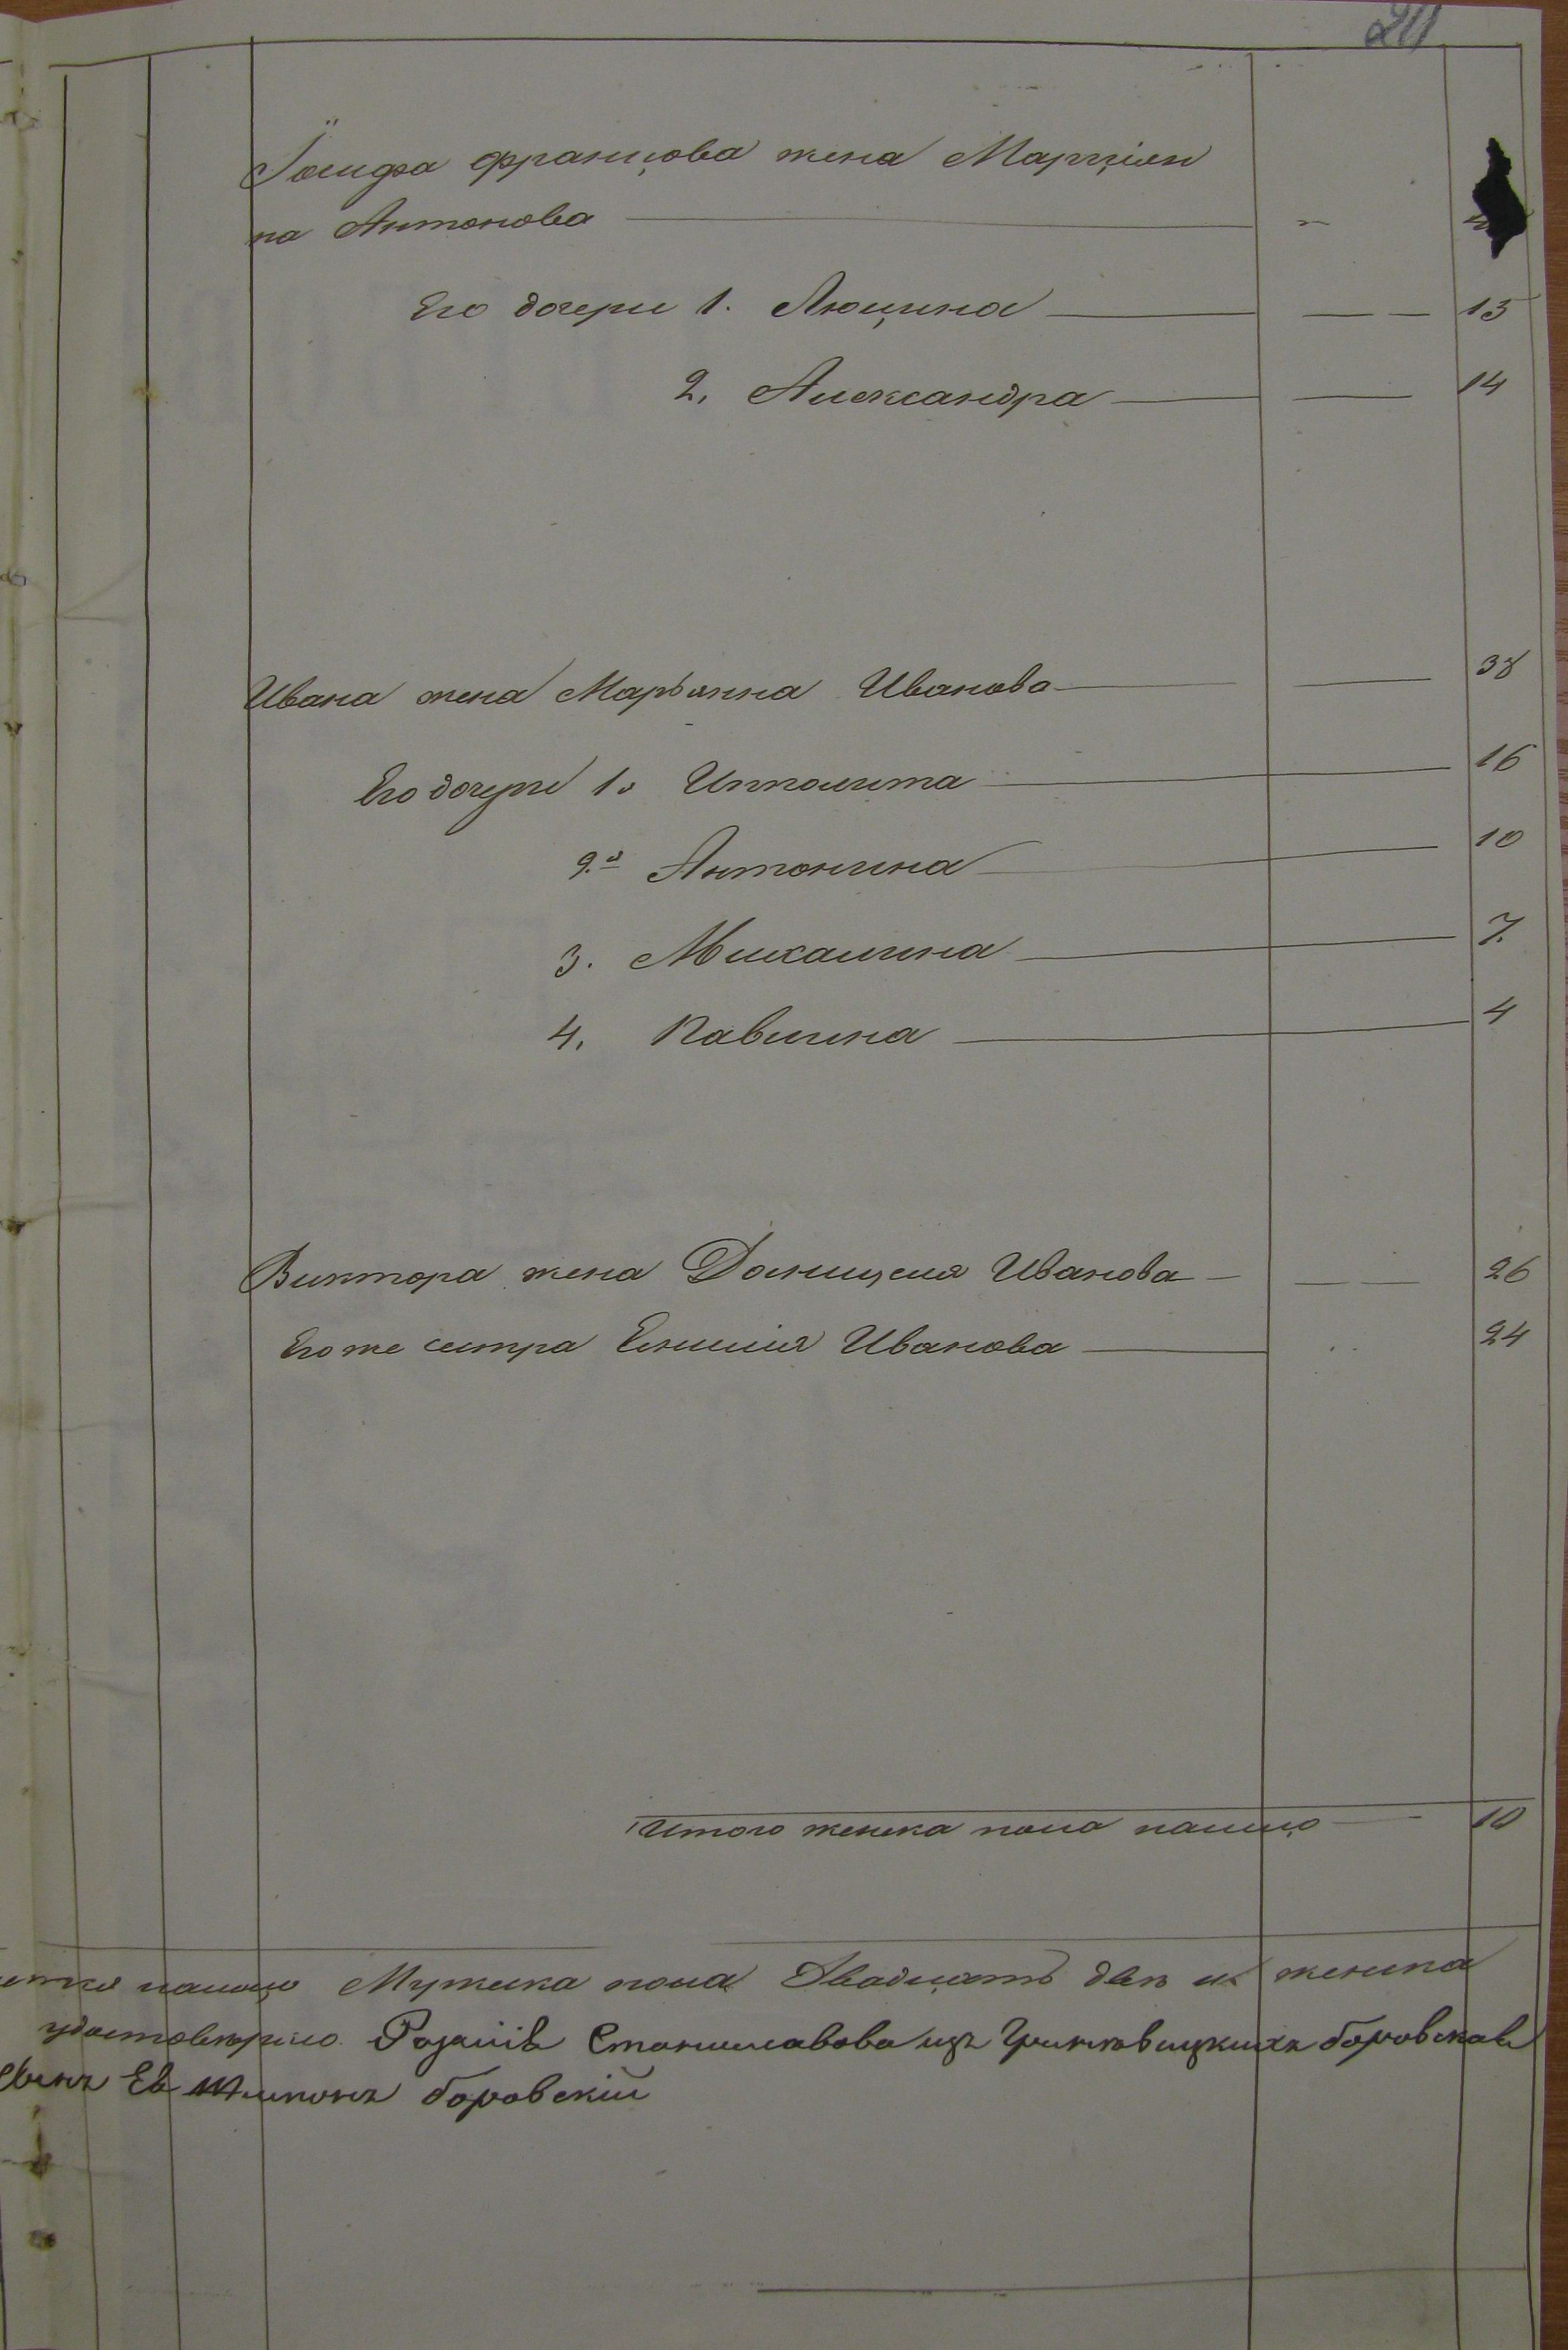 20
Іосифа францова жена Марціян
на Антонова —
Его дочери 1. Люцина — — — 15
2. Александра — — 14
Ивана жена Марьянна Иванова — — 38
Его дочери 1. Ипполита — 16
2. Антонина — 10
3. Михалина — 7.
4. Павлина — 4
Виктора жена Домицеля Иванова — — — 26
Его же сестра Емилия Иванова — 24
Итого женска пола налицо — 10
налицо Мужска пола Двадцать два и женска
удостоверяю Розалія Станиславова изъ боровская
боровскій